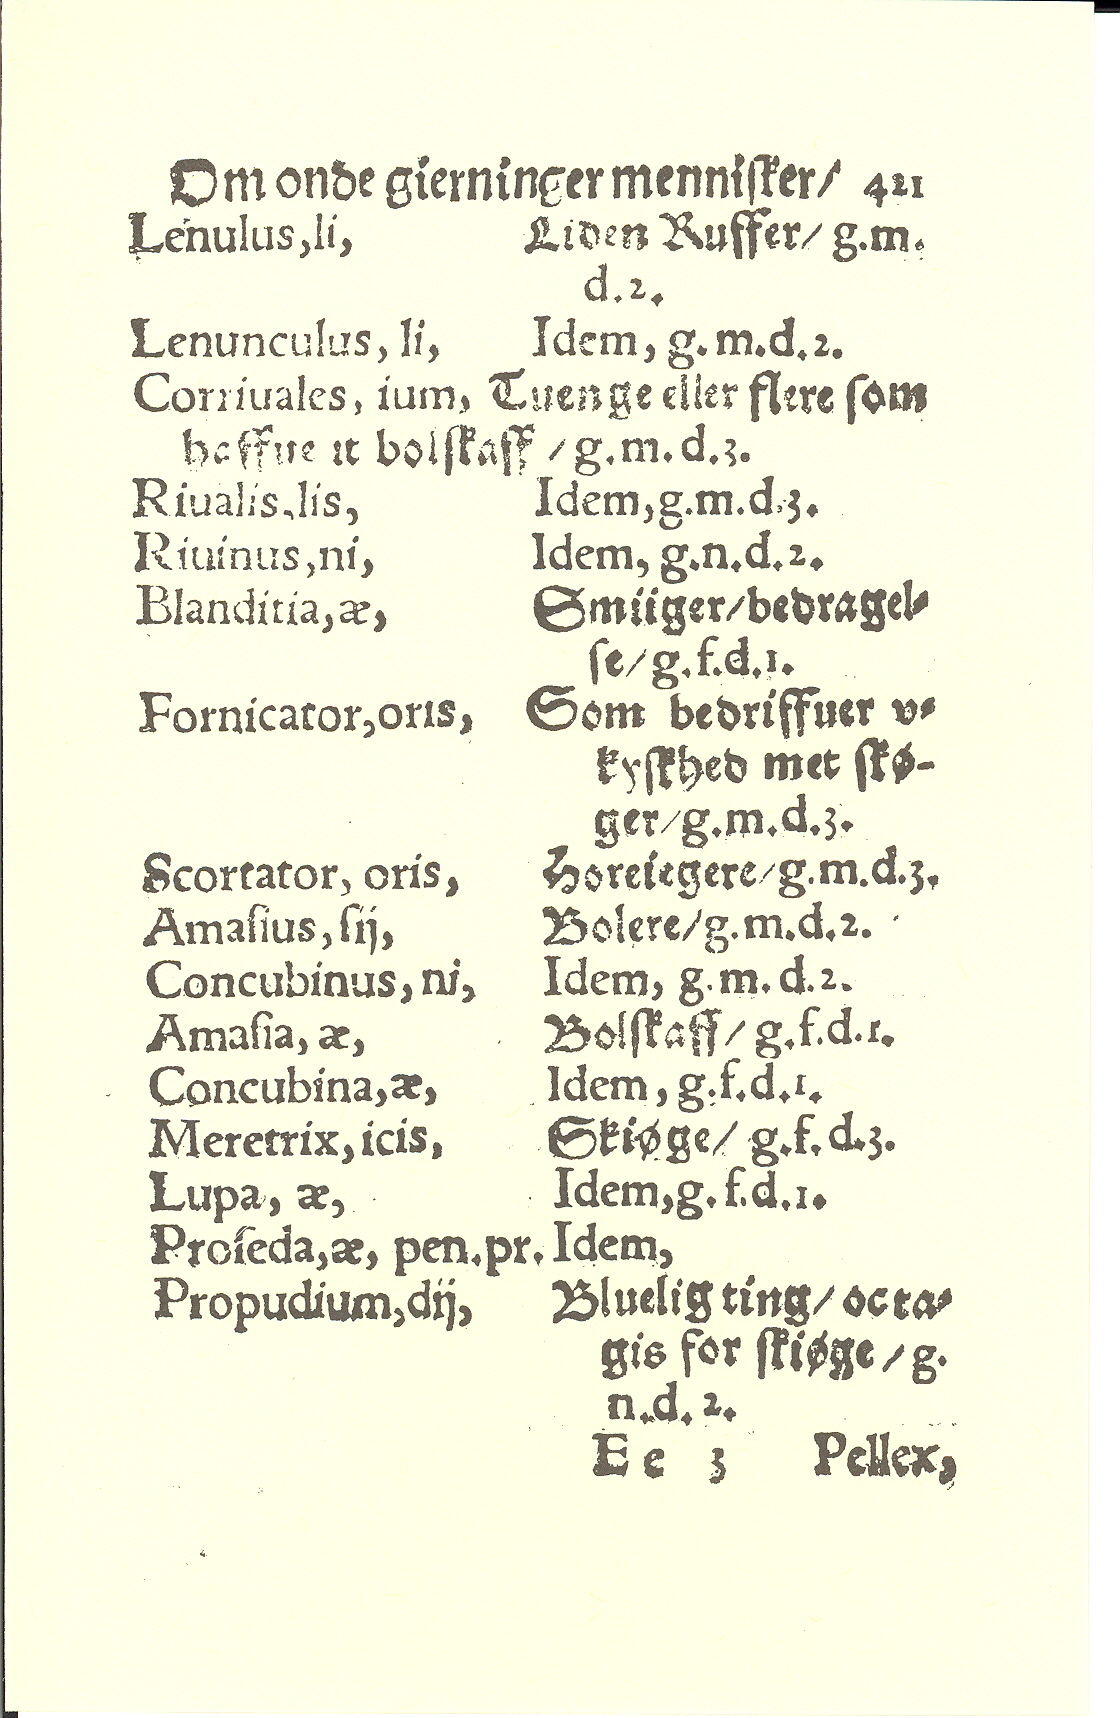 Om onde gierninger mennisker/ 421
Lenulus,li, Liden Ruffer/ g.m.
d.2.
Lenunculus, li, Idem, g.m.d.2.
Corriuales, ium, Tuenge eller flere som
haffue it bolskaff / g.m.d.3.
Riualis,lis, Idem,g.m.d.3.
Riuinus,ni, Idem, g.n.d.2.
Blanditia,æ, Smiiger/bedragel⸗
se/g.f.d.1.
Fornicator,oris, Som bedriffuer v⸗
kyskhed met skø-
ger/g.m.d.3.
Scortator, oris, Horeiegere/g.m.d.3.
Amaſius,ſij, Bolere/g.m.d.2.
Concubinus,ni, Idem, g.m.d.2.
Amaſia, æ, Bolskaff/ g.f.d.1.
Concubina,æ, Idem, g.f.d.1.
Meretrix,icis, Skiøge/ g.f.d.3.
Lupa, æ, Idem,g.f.d.1.
Proſeda,æ, pen.pr. Idem,
Propudium,dij, Bluelig ting/ oc ta⸗
gis for skiøge / g.
n.d.2.
Ee 3 Pellex,